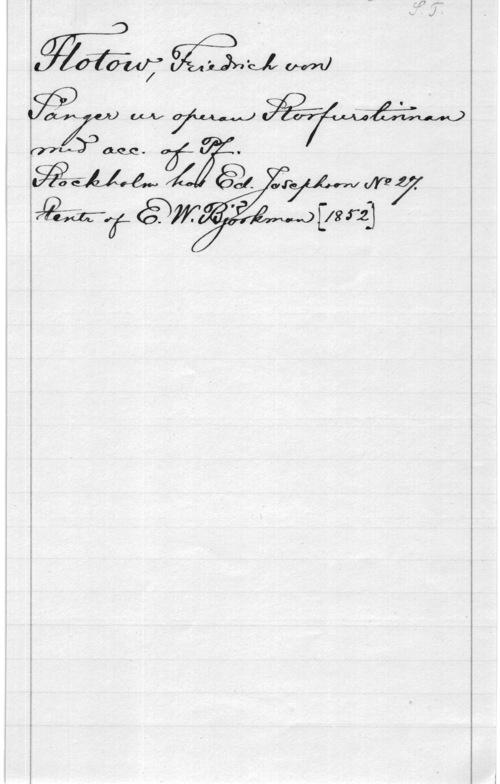 S. T.
Flotow, Friedrich von
Sånger ur operan Storfurstinnan
med acc. af Pf.
Stockholm hos Ed. Josephson No 27.
tentr af E. W. Björkman [1852]